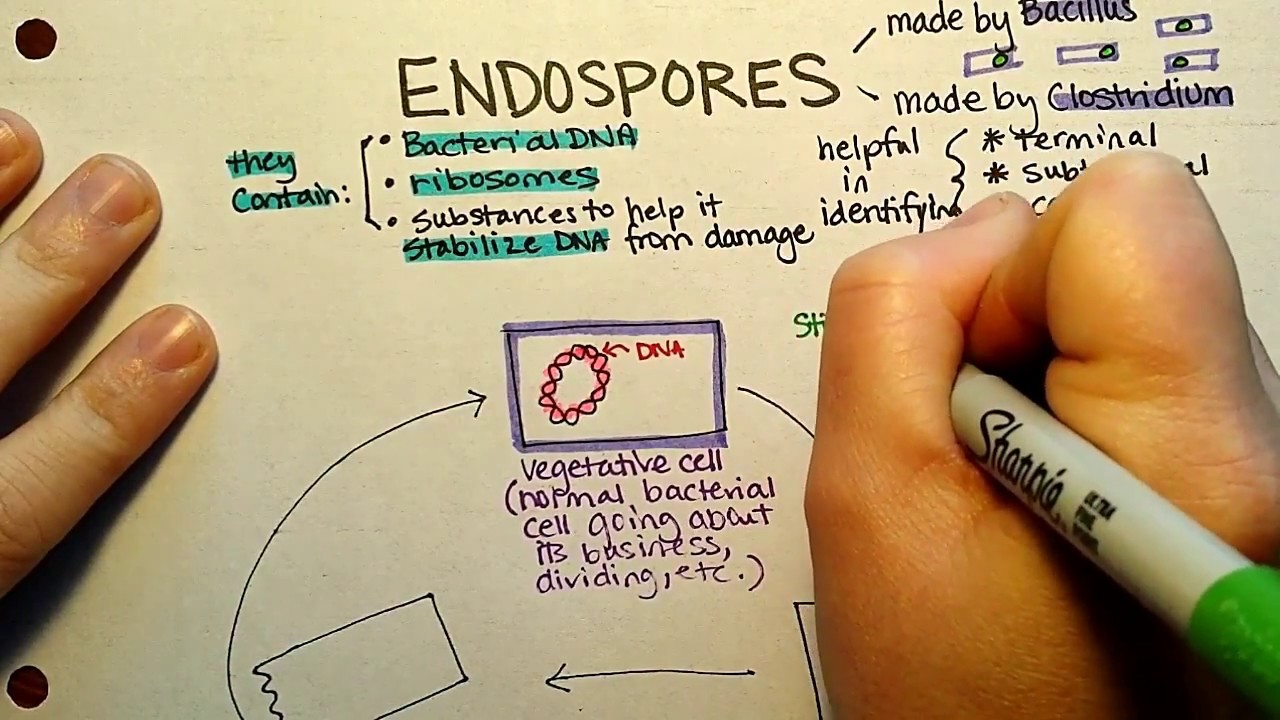 made by Bacillus
ENDOSPORES
made by Clostridium
they
contain:
• Bacterial DNA
• ribosomes
• Substances to help it
stabilize DNA from damage
helpful
in
identifying
* terminal
*
DNA
vegetative cell
(normal bacterial
cell going about
its business,
dividing, etc.)
Sharpie
ULTRA
FINE